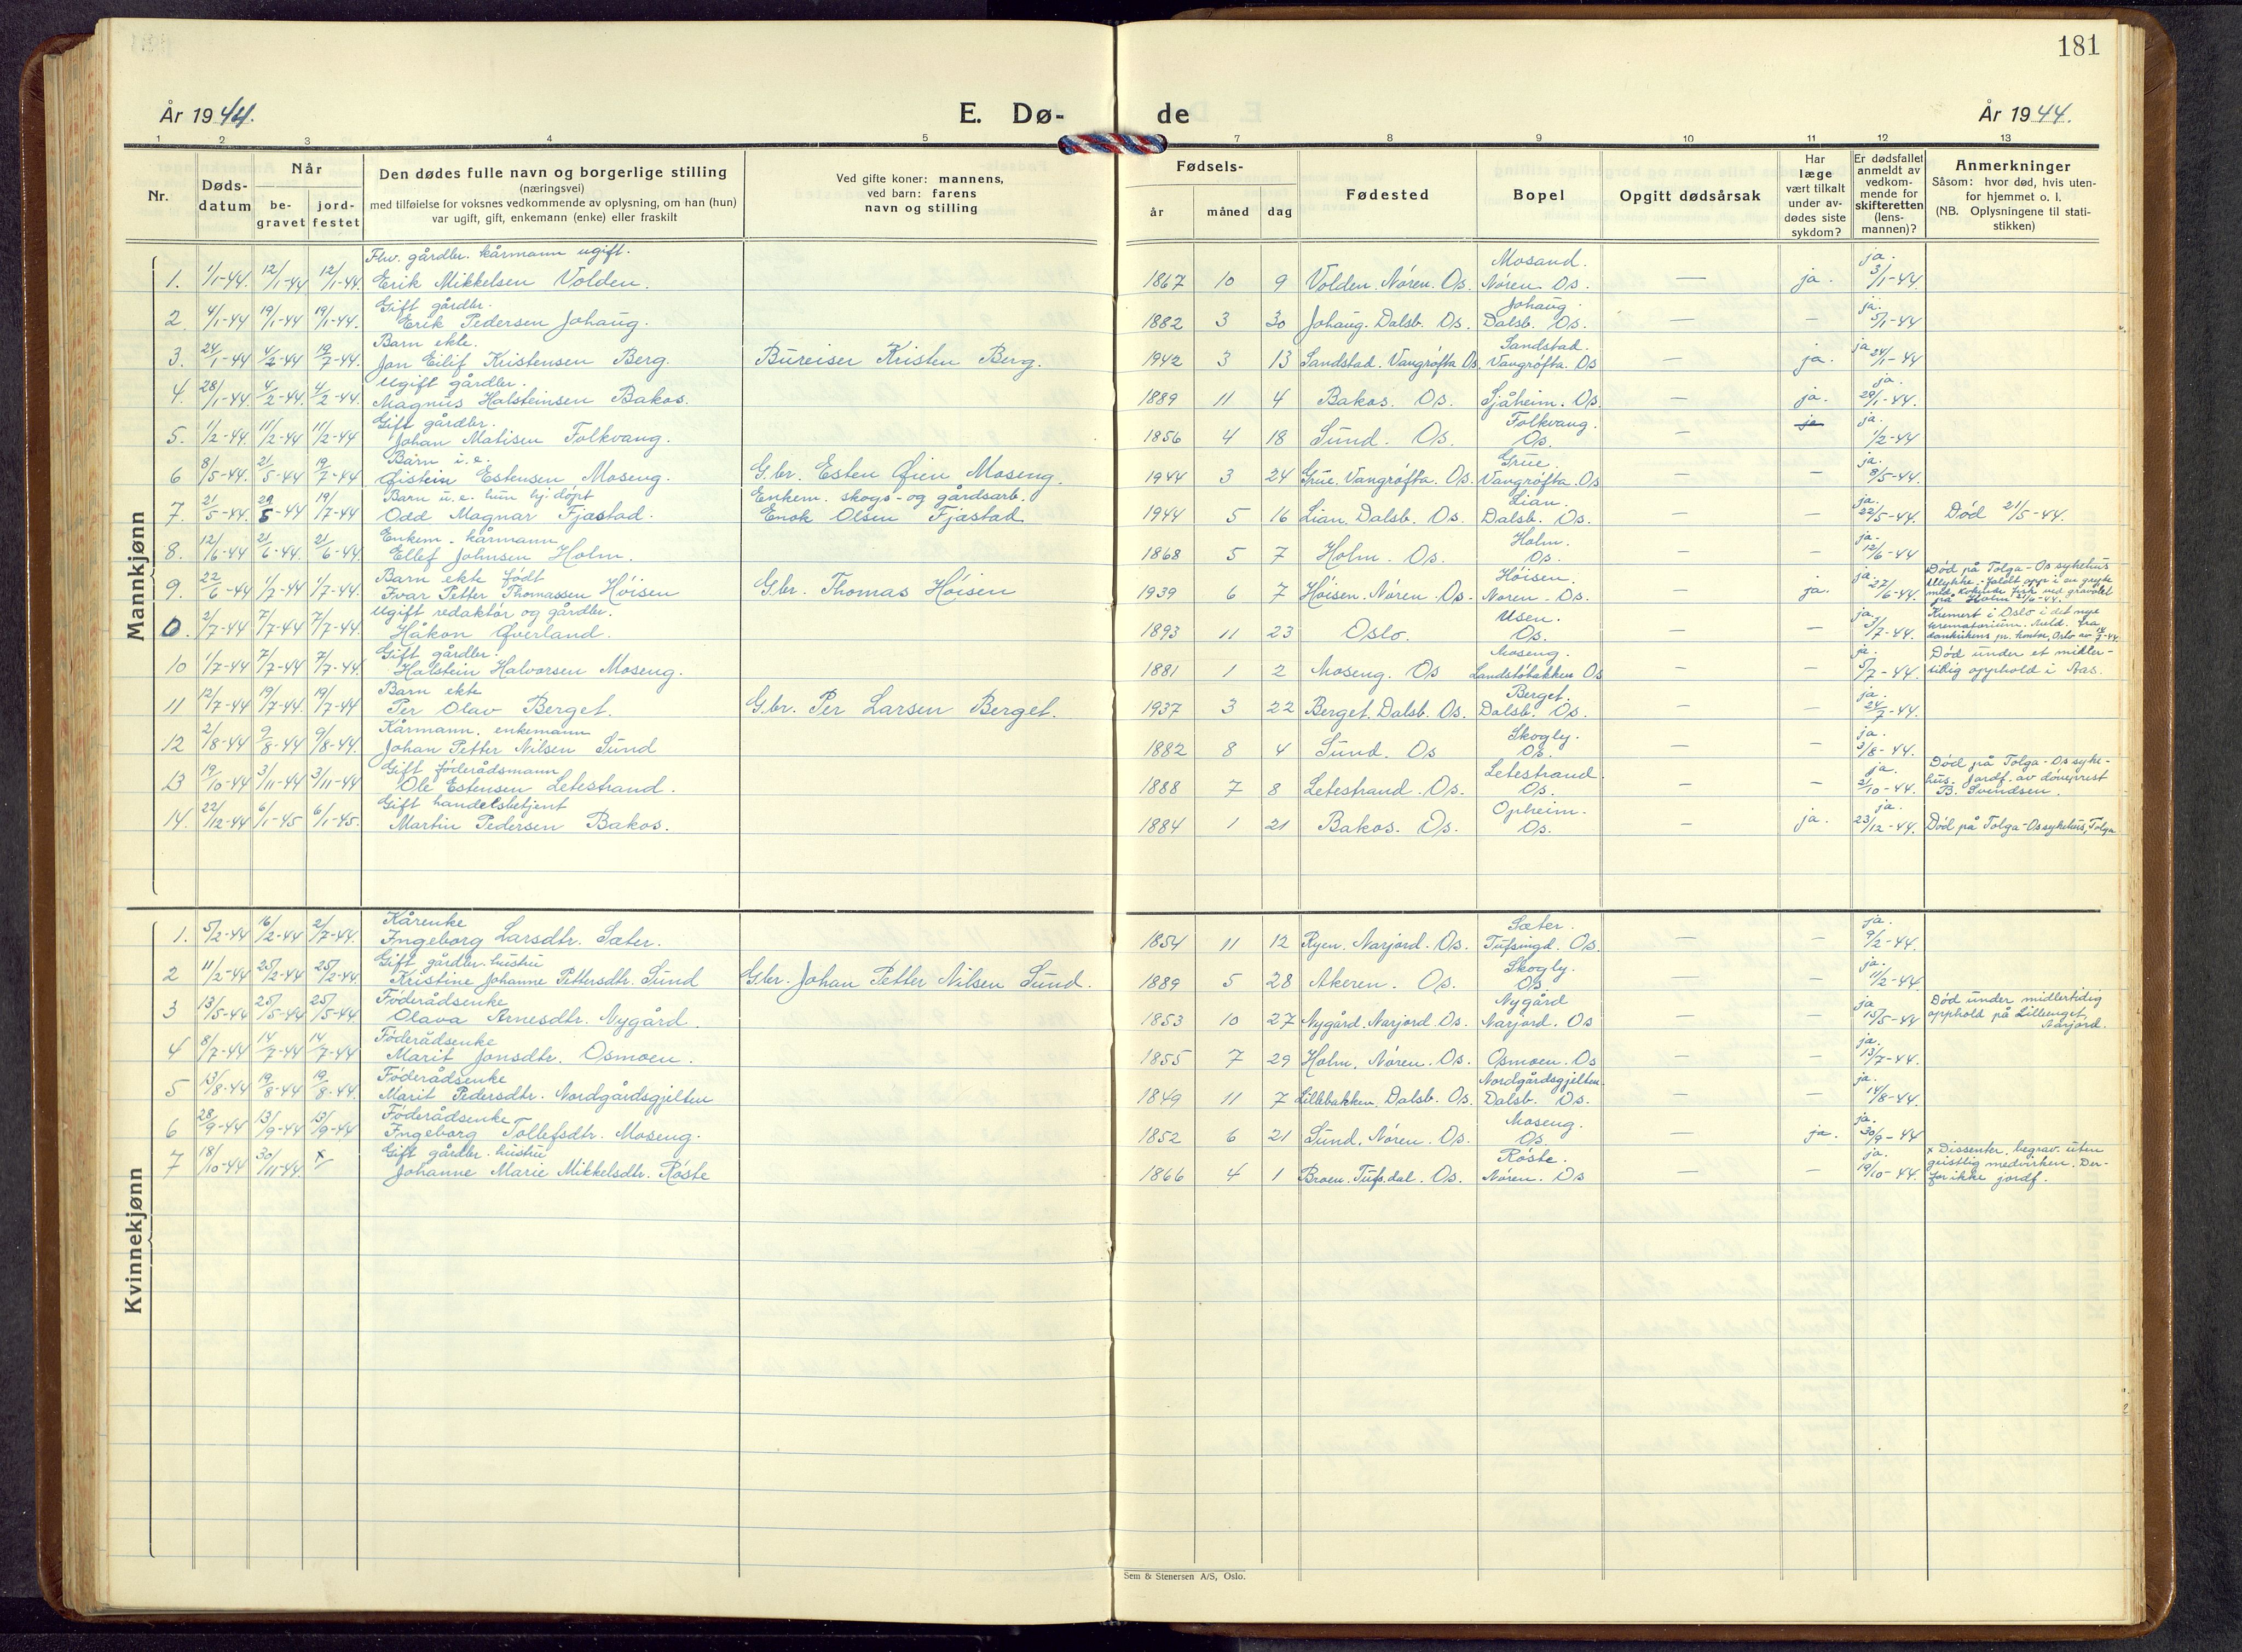 181
År 1944.
E. Dø-
de
År 1944.
1 2 3 4 5 7 8 9 10 11 12 13
Nr.
Døds-
datum
Når
be-
gravet
jord-
festet
Den dødes fulle navn og borgerlige stilling
(næringsvei)
med tilføielse for voksnes vedkommende av oplysning, om han (hun)
var ugift, gift, enkemann (enke) eller fraskilt
Ved gifte koner: mannens,
ved barn: farens
navn og stilling
Fødsels-
år
måned
dag
Fødested
Bopel
Opgitt dødsårsak
Har
læge
vært tilkalt
under av-
dødes siste
sykdom?
Er dødsfallet
anmeldt av
vedkom-
mende for
skifteretten
(lens-
mannen)?
Anmerkninger
Såsom: hvor død, hvis uten-
for hjemmet o. l.
(NB. Oplysningene til stati-
stikken)
Mannkjønn
Fhv. gårdbr. kårmann ugift. Mosand. ja.
1. 1/1-44. 12/1-44 12/1-44. Erik Mikkelsen Volden. 1867 10 9 Volden. Nøren. Os. Nøren. Os. — ja. 3/1-44
Gift gårdbr. Johaug. ja.
2. 4/1-44 19/1-44 19/1-44. Erik Pedersen Johaug. 1882 3 30 Johaug. Dalsb. Os. Dalsb. Os. — — 5/1-44
Barn ekte. Sandstad. ja
3. 24/1-44 4/2-44 19/7-44 Jon Eilif Kristensen Berg. Bureiser Kristen Berg. 1942 3 13 Sandstad. Vangrøfta Os. Vangrøfta. Os — ja. 24/1-44
Ugift gårdbr. ja.
4. 28/1-44 4/2-44 4/2-44. Magnus Halsteinsen Bakos. 1889 11 4 Bakos. Os. Sjåheim. Os. — ja. 29/1-44.
Gift gårdbr. Folkvang. ja.
5. 1/2-44. 11/2-44 11/2-44 Johan Matisen Folkvang. 1856 4 18 Sund. Os. Os. — ja 1/2-44
Barn u.e. Grue. ja.
6 8/5-44. 21/5-44 19/7-44 Øistein Estensen Moseng. G.br. Esten Øien Moseng. 1944 3 24 Grue. Vangrøfta. Os. Vangrøfta. Os — — 9/5-44
Barn u.e. hun hj.døpt Enkem. skogs- og gårdsarb. Lian. ja.
7. 21/5-44. 29/5-44 19/7-44 Odd Magnar Fjæstad. Enok Olsen Fjæstad 1944 5 16 Lian. Dalsb. Os. Dalsb. Os. — — 22/5-44. Død 21/5-44.
Enkem. kårmann Holm. ja.
8. 12/6-44 21/6-44. 21/6-44 Ellef Johnsen Holm. 1868 5 7 Holm. Os. Os. — — 12/6-44
Barn ekte født Høisen. ja Død på Tolga-Os sykehus
9. 22/6-44 1/7-44 1/7-44. Ivar Petter Thomassen Høisen G.br. Thomas Høisen 1939 6 7 Høisen. Nøren. Os. Nøren. Os. — ja. 27/6-44. Ulykke. Faldt opp i en gryte
med kokende fisk ved gravølet
på Holm 21/6-44.
Ugift redaktør og gårdbr. Usen. ja. Kremert i Oslo i det nye
0. 2/7-44 7/7-44 7/7-44 Håkon Øverland. 1893 11 23 Oslo. Os. — — 3/7-44. krematorium. Meld. fra
domkirkens pr. kontor, Oslo av 14/7-44
Gift gårdbr. Moseng. ja. Død under et midler-
10 1/7-44 7/7-44 7/7-44. Halstein Halvorsen Moseng. 1881 1 2 Moseng. Os Landstøbakken Os — — 5/7-44. tidig opphold i Aas.
Barn ekte Berget. ja.
11 12/7-44 19/7-44. 19/7-44 Per Olav Berget. G.br. Per Larsen Berget. 1937 3 22 Berget. Dalsb. Os. Dalsb. Os. — — 24/7-44.
Kårmann. enkemann Skogly. ja.
12 2/8-44 9/8-44 9/8-44. Johan Petter Nilsen Sund 1882 8 4 Sund. Os Os. — — 3/8-44.
Gift føderådsmann Letestrand. ja. Død på Tolga-Os syke-
13 19/10-44 3/11-44 3/11-44 Ole Estensen Letestrand. 1888 7 8 Letestrand. Os. Os. — — 21/10-44. hus. Jordf. av domeprest
B. Svendsen.
Gift handelsbetjent Opheim. ja.
14. 22/12-44 6/1-45 6/1-45. Martin Pedersen Bakos. 1884 1 21 Bakos. Os. Os. — ja. 23/12-44. Død på Tolga-Os sykehus, Tolga
Kvinnekjønn
Kårenke Sæter. ja.
1. 5/2-44 16/2-44 2/7-44. Ingeborg Larsdtr. Sæter. 1854 11 12 Ryen. Narjord. Os. Tufsingd. Os. — — 9/2-44.
Gift gårdbr. hustru Skogly. ja.
2 11/2-44 25/2-44 25/2-44. Kristine Johanne Pettersdtr. Sund G.br. Johan Petter Nilsen Sund. 1889 5 28 Akeren. Os. Os. — — 11/2-44.
Føderådsenke Nygård ja Død under midlertidig
3 13/5-44 25/5-44 25/5-44. Olava Arnesdtr. Nygård. 1853 10 27 Nygård. Narjord. Os. Narjord. Os — — 15/5-44 opphold på Lilleenget,
Narjord.
Føderådsenke ja.
4 8/7-44 14/7-44 14/7-44 Marit Jonsdtr. Osmoen. 1855 7 29 Holm. Nøren. Os. Osmoen. Os — — 13/7-44.
Føderådsenke Nordgårdsgjelten. ja.
5 13/8-44. 19/8-44 19/8-44. Marit Pedersdtr. Nordgårdsgjelten 1849 11 7 Lillebakken. Dalsb. Os. Dalsb. Os. — — 14/8-44.
Føderådsenke Moseng. ja.
6 28/9-44 13/9-44 13/9-44 Ingeborg Tollefsdtr. Moseng. 1852 6 21 Sund. Nøren. Os. Os. — ja. 30/9-44
Gift gårdbr. hustru Røste. ja. x Dissenter, begrav. uten
7 18/10-44 30/11-44. x Johanne Marie Mikkelsdtr. Røste 1866 4 1 Broen. Tufs.dal. Os. Nøren. Os — — 19/10-44. geistlig medvirken. Der-
for ikke jordf.
Sem & Stenersen A/S, Oslo.